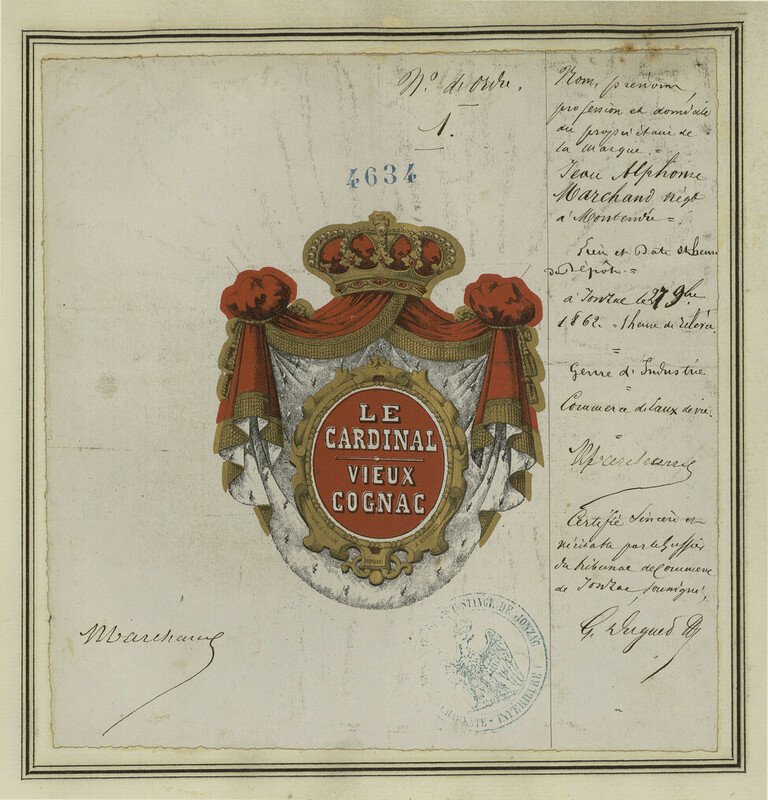 N.º de Ordre.
1.
4634
LE
CARDINAL
VIEUX
COGNAC
DÉPOSÉ
Marchand
TRIBUNAL DE 1RE INSTANCE DE JONZAC
CHARENTE-INFÉRIEURE
Nom, prénom,
profession et domicile
du propriétaire de
la marque. =
Jean Alphonse
Marchand négt
à Montendre =
et Date et heure
du Dépôt. =
à Jonzac le 27 9bre
1862. heure de
=
Genre d'Industrie
=
Commerce d'Eaux de vie.
=
Marchand
Certifié Sincère et
véritable par le Greffier
du tribunal de Commerce
de Jonzac soussigné,
G.